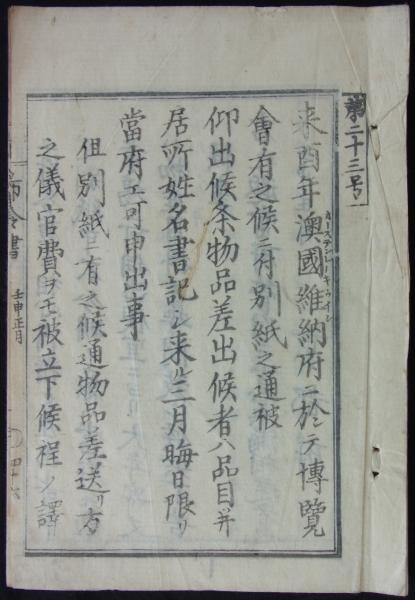 第二十三号
来酉年澳國維納府ニ於シテ博覧
會有之候ニ付別紙之通被
仰出候条物品差出候者ハ品目並
居所姓名書記シ来ル三月晦日限リ
當府エ可申出事
但別紙ニ有之候通物品差送リ方
之儀官費ヲモ被立下候程ノ譯
布令書
壬申正月
四十六